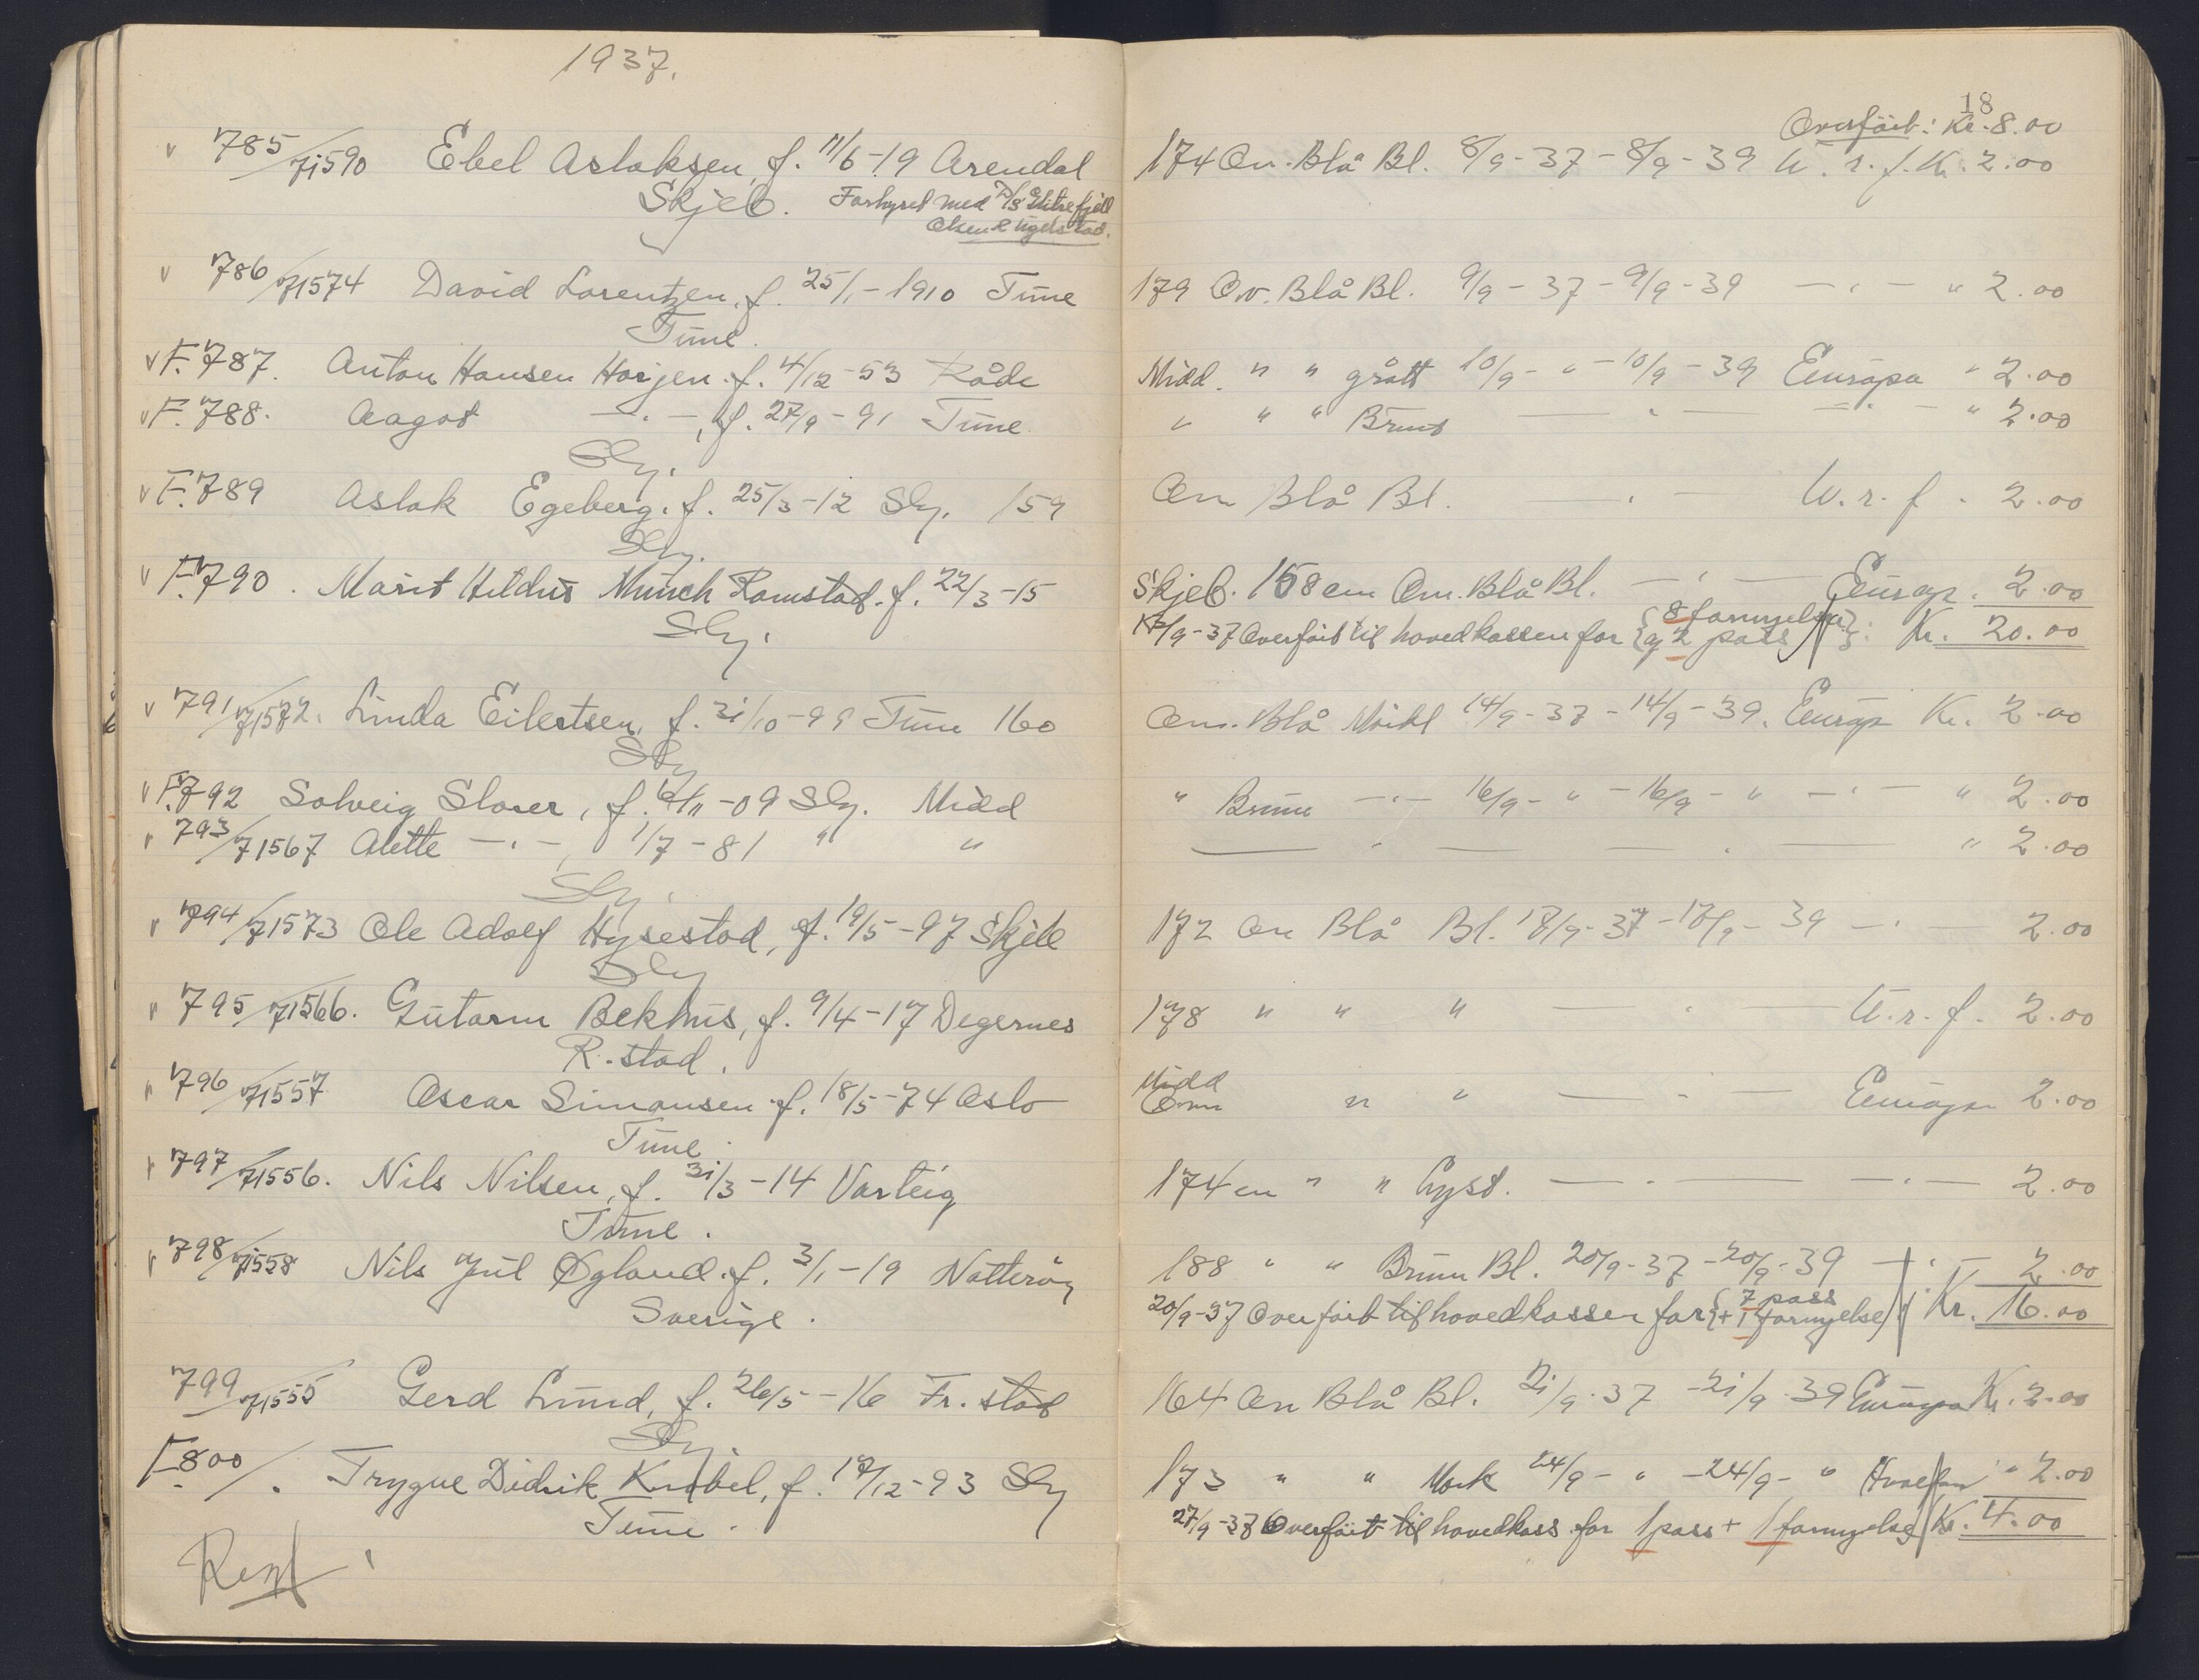 1937.
785/71590 Ebel Aslaksen, f. 11/6-19 Arendal
Skjeb. Forhyret med
Olsen &
786/71574 David Lorentzen, f. 25/1-1910 Tune
Tune.
F. 787. Anton Hansen Horjen. f. 4/12-53 Råde
F. 788. Aagot — " —, f. 27/9-91 Tune.
Slg.
F. 789 Aslak Egeberg. f. 25/3-12 Slg. 159
Slg.
F. 790. Marit Hildur Munch Ramstad. f. 22/3-15
Slg.
791/71572. Linda Eilertsen, f. 31/10-99 Tune 160
Slg
F. 792 Solveig Sloser, f. /11-09 Slg. Midd
793/71567 Alette — " —, 1/7-81 " "
Slg.
794/71573 Ole Adolf Hysestad, f. 19/5-97 Skjeb
Slg
795/71566. Gutorm Bekhus, f. 9/4-17 Degernes
R.stad.
796/71557 Oscar Simonsen f. 18/5-74 Oslo
Tune.
797/71556. Nils Nilsen, f. 31/3-14 Varteig
Tune.
798/71558 Nils Jul Øgland. f. 3/1-19 Nøtterøy
Sverige.
799/71555 Gerd Lund, f. 26/5-16 Fr.stad
Slg.
F. 800/. Trygve Didrik f. /12-93 Slg
Tune.
18
Overført: Kr. 8.00
174 Ov. Blå Bl. 8/9-37-8/9-39 U. r. f. Kr. 2.00
179 Ov. Blå Bl. 9/9-37-9/9-39 — " — " 2.00
Midd. " " grått 10/9- " -10/9-39 Europa " 2.00
" " " Brunt — " — — " — " 2.00
Ov Blå Bl. — " — U. r. f. 2.00
Skjeb. 158 cm Ov. Blå Bl. — " — Europ. 2.00
/9-37 Overført til hovedkassen for {8 fornyelser og 2 pass}: Kr. 20.00
Ov. Blå Mørkt 14/9-37-14/9-39. Europ Kr. 2.00
" Brune — " — 16/9- " -16/9- " — " — " 2.00
— " — — " — " 2.00
172 Ov Blå Bl. 18/9-37-18/9-39 — " — 2.00
178 " " " — " — U. r. f. 2.00
Midd
Ov " " — " — Europa 2.00
174 ov " " Lyst. — " — — " — 2.00
188 " " Brun Bl. 20/9-37-20/9-39 — " — 2.00
20/9-37 Overført til hovedkassen for {7 pass + 1 fornyelse} Kr. 16.00
164 Ov Blå Bl. 21/9-37-21/9-39 Europa Kr. 2.00
173 " " Mørk 24/9- " -24/9- " " 2.00
27/9-37 Overført til hovedkass for 1 pass + 1 fornyelse Kr. 4.00